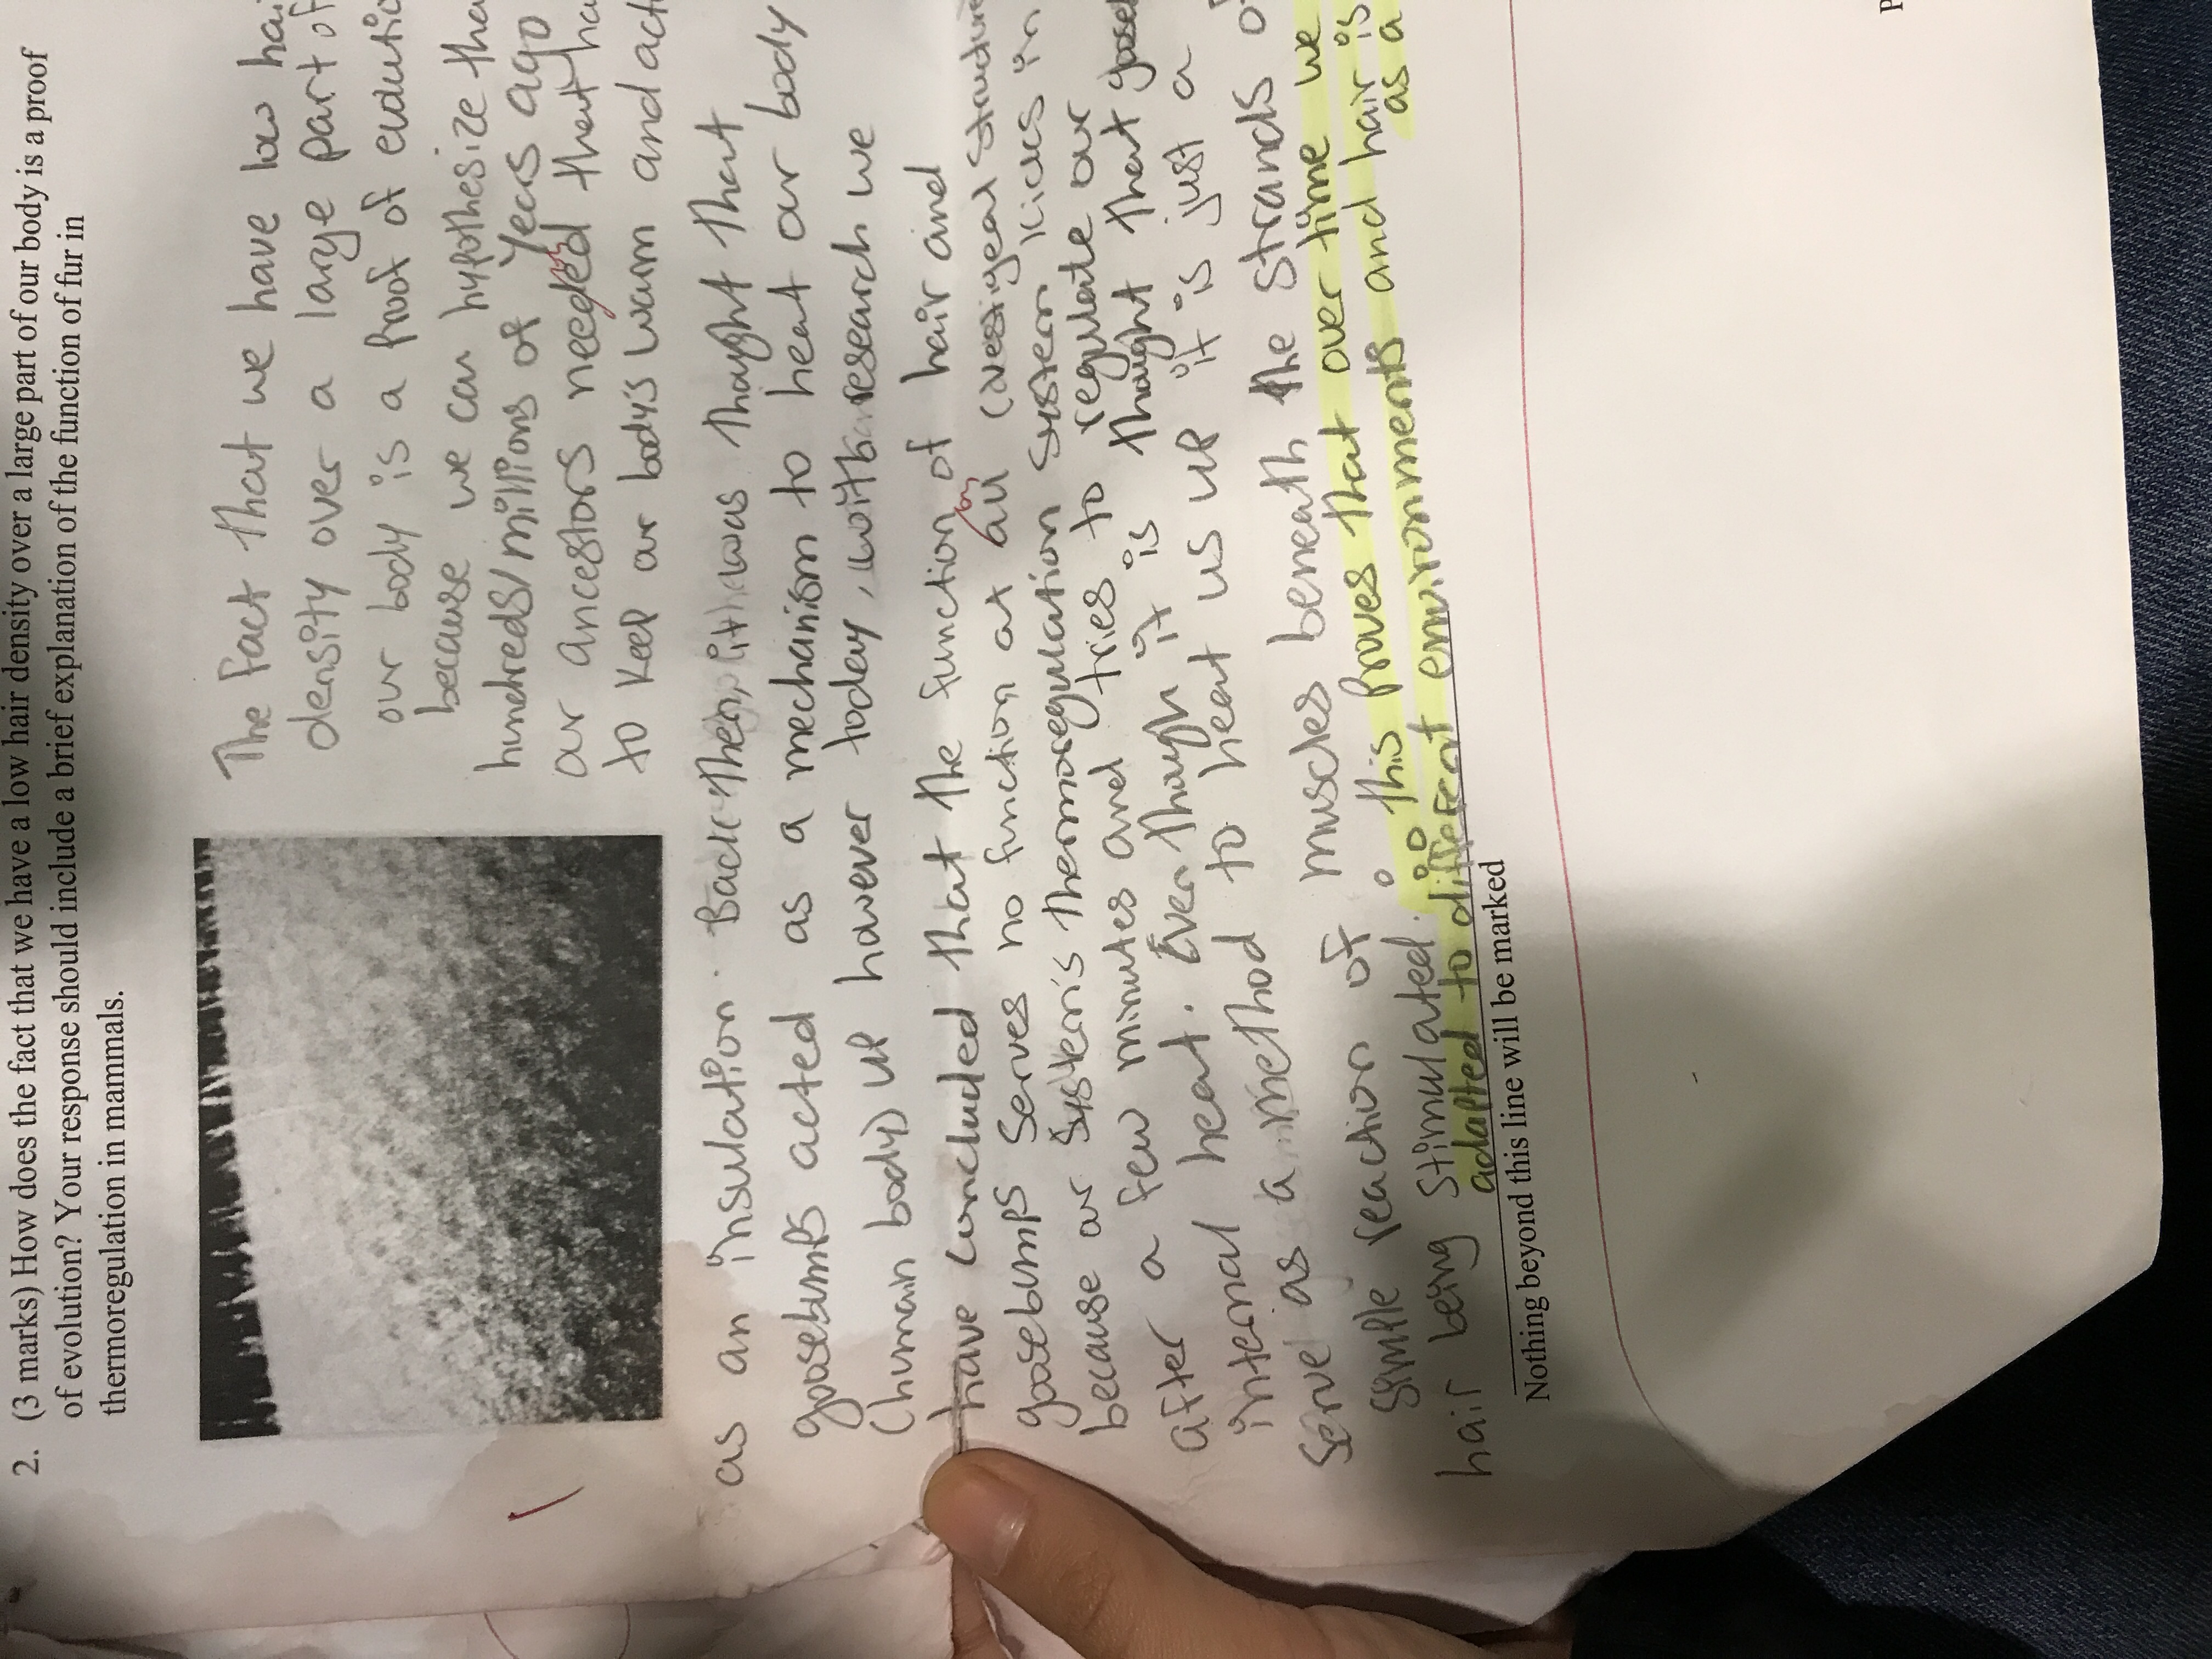 2. (3 marks) How does the fact that we have a low hair density over a large part of our body is a proof
of evolution? Your response should include a brief explanation of the function of fur in
thermoregulation in mammals.
The fact that we have low hai
density over a large part of
our body is a Proof of evolutio
because we can hypothesize tha
hundreds/millions of Years ago
our ancestors needed that ha
to keep our body's warm and act
as an insulation. Back then, it was thought that
goosebumps acted as a mechanism to heat our body
(human body) up however today, with research we
have concluded that the function of hair and
goosebumps serves no function at all (vestigeal structure
because our system's thermoregulation system kicks in
after a few minutes and tries to regulate our
internal heat. Even though it is thought that goose
serve as a method to heat us up it is just a
simple reaction of muscles beneath the strands of
hair being stimulated. this proves that over time we
adapted to different environments and hair is
as a
Nothing beyond this line will be marked
P